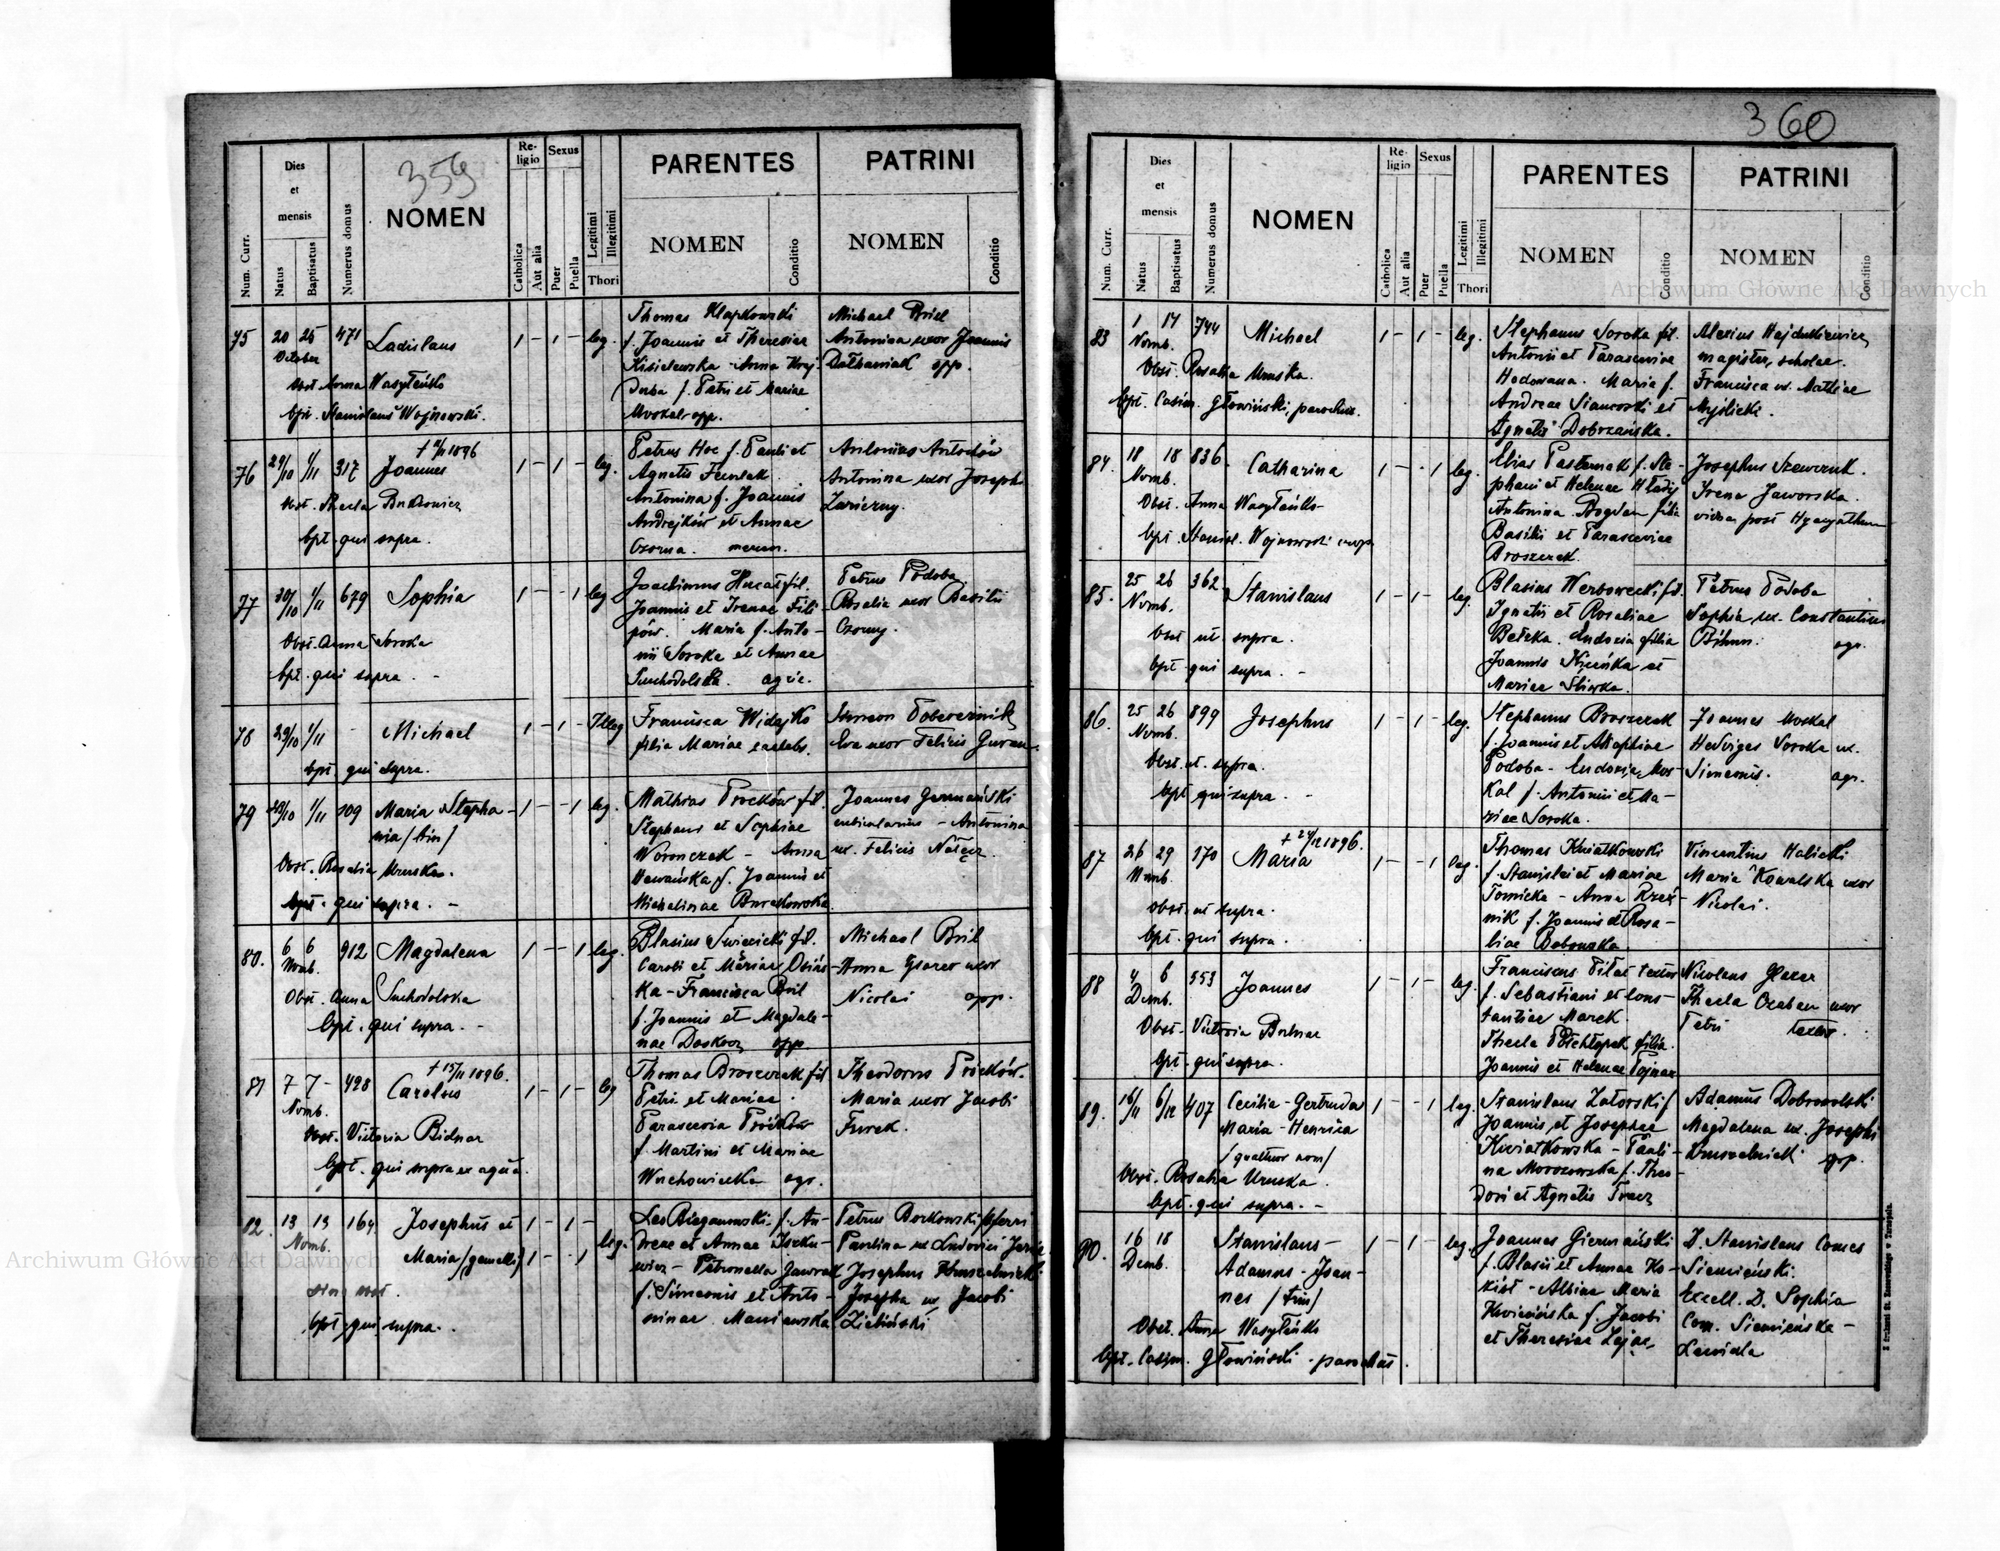 359
Dies et mensis
NOMEN
Religio
Sexus
PARENTES
PATRINI
Num. Curr.
Natus
Baptisatus
Numerus domus
Catholica
Aut alia
Puer
Puella
Legitimi
Illegitimi
Thori
NOMEN
Conditio
NOMEN
Conditio
75 20 25 471 Ladislaus 1 - 1 - leg.
October
Obst. Anna Wasyleńko
bpt. Stanislaus Wojnowski.
Thomas Klapkowski
f. Joannis et Theresiae
Kisielewska - Anna
f. Petri et Mariae
Moskal opp.
Michael Briel
Antonina uxor Joannis
opp.
76 29/10 1/11 317 Joannes 1 - 1 - leg.
1896
Obst. Thecla
bpt. qui supra.
Petrus Hoc f. Pauli et
Agnetis
Antonina f. Joannis
Andrejków et Annae
Czorna.
Antonius Antochów
Antonina uxor Joseph
77 30/10 1/11 679 Sophia 1 - - 1 leg
Obst. Anna Soroka
bpt. qui supra. -
Joachimus Hucał fil.
Joannis et Irenae Fili-
pów. Maria f. Anto-
nii Soroka et Annae
Suchodolska. agric.
Petrus Podoba
Rosalia uxor Basilii
Czorny.
78 29/10 1/11 - Michael 1 - 1 - Illeg
bpt. qui supra.
Francisca Widejko
filia Mariae
Simeon
Eva uxor Felicis
79 29/10 1/11 109 Maria Stepha- 1 - - 1 leg.
nia /bin/
Obst. Rosalia Uruska.
bpt. qui supra. -
Mathias Procków fil.
Stephani et Sophiae
Woronczak - Anna
f. Joannis et
Michalinae Burakowska
Joannes Germański
Antonina
ux. Felicis Nałęcz.
80. 6 6 912 Magdalena 1 - - 1 leg.
Novmb.
Obst. Anna Suchodolska
bpt. qui supra. -
Blasius Święcicki fil.
Caroli et Mariae Osiás-
ka - Francisca Bril
f. Joannis et Magdale-
nae Doskocz opp.
Michael Bril
Anna uxor
Nicolai opp.
81 7 7 - 498 Carolus 1 - 1 - leg
† 15/11 1896.
Novmb.
Obst. Victoria Bidnar
bpt. qui supra ex aqua.
Thomas Broszczak fil
Petri et Mariae.
Parascevia Prockow
f. Martini et Mariae
agr.
Theodorus Prockow.
Maria uxor Jacobi
Furek.
82. 13 13 164 Josephus et 1 - 1 -
Novmb. Maria /gemelli/ 1 - - 1 leg.
sine obst.
bpt. qui supra.
Leo Bieganowski f. An-
dreae et Annae Iszku-
wicz - Petronella Jaworsk
f. Simeonis et Anto-
ninae
Petrus Borkowski
Paulina ux Ludovici
Josephus
Josepha ux Jacobi
Zieliński
360
Dies et mensis
NOMEN
Religio
Sexus
PARENTES
PATRINI
Num. Curr.
Natus
Baptisatus
Numerus domus
Catholica
Aut alia
Puer
Puella
Legitimi
Illegitimi
Thori
NOMEN
Conditio
NOMEN
Conditio
83 1 17 744 Michael 1 - 1 - leg.
Novmb.
Obst. Rosalia Uruska.
bpt. Casim. Głowiński, parochus.
Stephanus Soroka fil.
Antonii et Parasceviae
Hodowana. Maria f.
Andreae et
Agnetis Dobrzańska.
Alexius Hajdukiewicz
magister scholae.
Francisca ux. Mathiae
Myślicki.
84. 18 18 836 Catharina 1 - - 1 leg
Novmb.
Obst. Anna Wasyleńko
bpt. Stanisl. Wojnowski coop.
Elias Pasternak f. Ste-
phani et Helenae Hładij
Antonina Bogdan filia
Basilii et Parasceviae
Broszczak.
Josephus Szewczuk.
Irena Jaworska.
vidua post Hyacynthum
85. 25 26 362 Stanislaus 1 - 1 - leg.
Novmb.
Obst ut supra.
bpt. qui supra. -
Blasius Werbowecki fil.
Ignatii et Rosaliae
Bełzka. Eudoxia filia
Joannis et
Mariae
Petrus Podoba
Sophia ux. Constantini
Bihun. agr.
86. 25 26 899 Josephus 1 - 1 - leg.
Novmb.
Obst. ut supra.
bpt. qui supra. -
Stephanus Broszczak
f. Joannis et Ahaphiae
Podoba - Eudoxia Mos-
kal f. Antonii et Ma-
riae Soroka.
Joannes Moskal
Hedviges Soroka ux.
Simeonis. agr.
87 26 29 170 Maria 1 - - 1 leg
† 24/12 1896.
Novmb.
Obst. ut supra.
bpt. qui supra.
Thomas Kwiatkowski
f. Stanislai et Mariae
Tomicka - Anna Rzeź-
nik f. Joannis et Rosa-
liae Bobowska.
Vincentius Halicki
Maria Kowalska uxor
Nicolai.
88 4 6 353 Joannes 1 - 1 - leg.
Decmb.
Obst. Victoria Bidnar
bpt. qui supra.
Franciscus Pilat textor
f. Sebastiani et Cons-
tantiae Marek.
Thecla filia
Joannis et Helenae
Nicolaus
Thecla uxor
Petri textor.
89. 16/11 6/12 407 Cecilia - Gertruda 1 - - 1 leg.
Maria - Henrica
/quattuor nom/
Obst. Rosalia Uruska.
bpt. qui supra. -
Stanislaus Zatorski f
Joannis et Josephae
Kwiatkowska - Pauli-
na Morozowska f. Theo-
dori et Agnetis Tracz
Adamus Dobrowolski
Magdalena ux. Josephi
opp.
90. 16 18 Stanislaus - 1 - 1 - leg.
Decmb. Adamus - Joan-
nes /trin/
Obst. Anna Wasyleńko
bpt. Casim. Głowiński - parochus.
Joannes Giermański
f. Blasii et Annae Ho-
Albina Maria
Kwiecińska f. Jacobi
et Theresiae Zając
D. Stanislaus Comes
Siemieński.
Excell. D. Sophia
Com. Siemieńska -
Lewicka
Archiwum Główne Akt Dawnych
Archiwum Główne Akt Dawnych